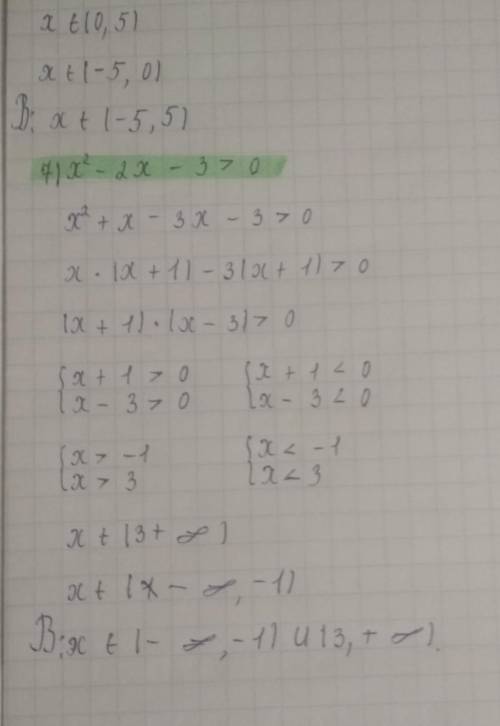 x ∈ (0, 5)
x ∈ (-5, 0)
В: x ∈ (-5, 5)
7) x² - 2x - 3 > 0
x² + x - 3x - 3 > 0
x · (x + 1) - 3(x + 1) > 0
(x + 1) · (x - 3) > 0
{x + 1 > 0 {x + 1 < 0
{x - 3 > 0 {x - 3 < 0
{x > -1 {x < -1
{x > 3 {x < 3
x ∈ (3 + ∞)
x ∈ (x - ∞, -1)
В: x ∈ (- ∞, -1) ∪ (3, + ∞).